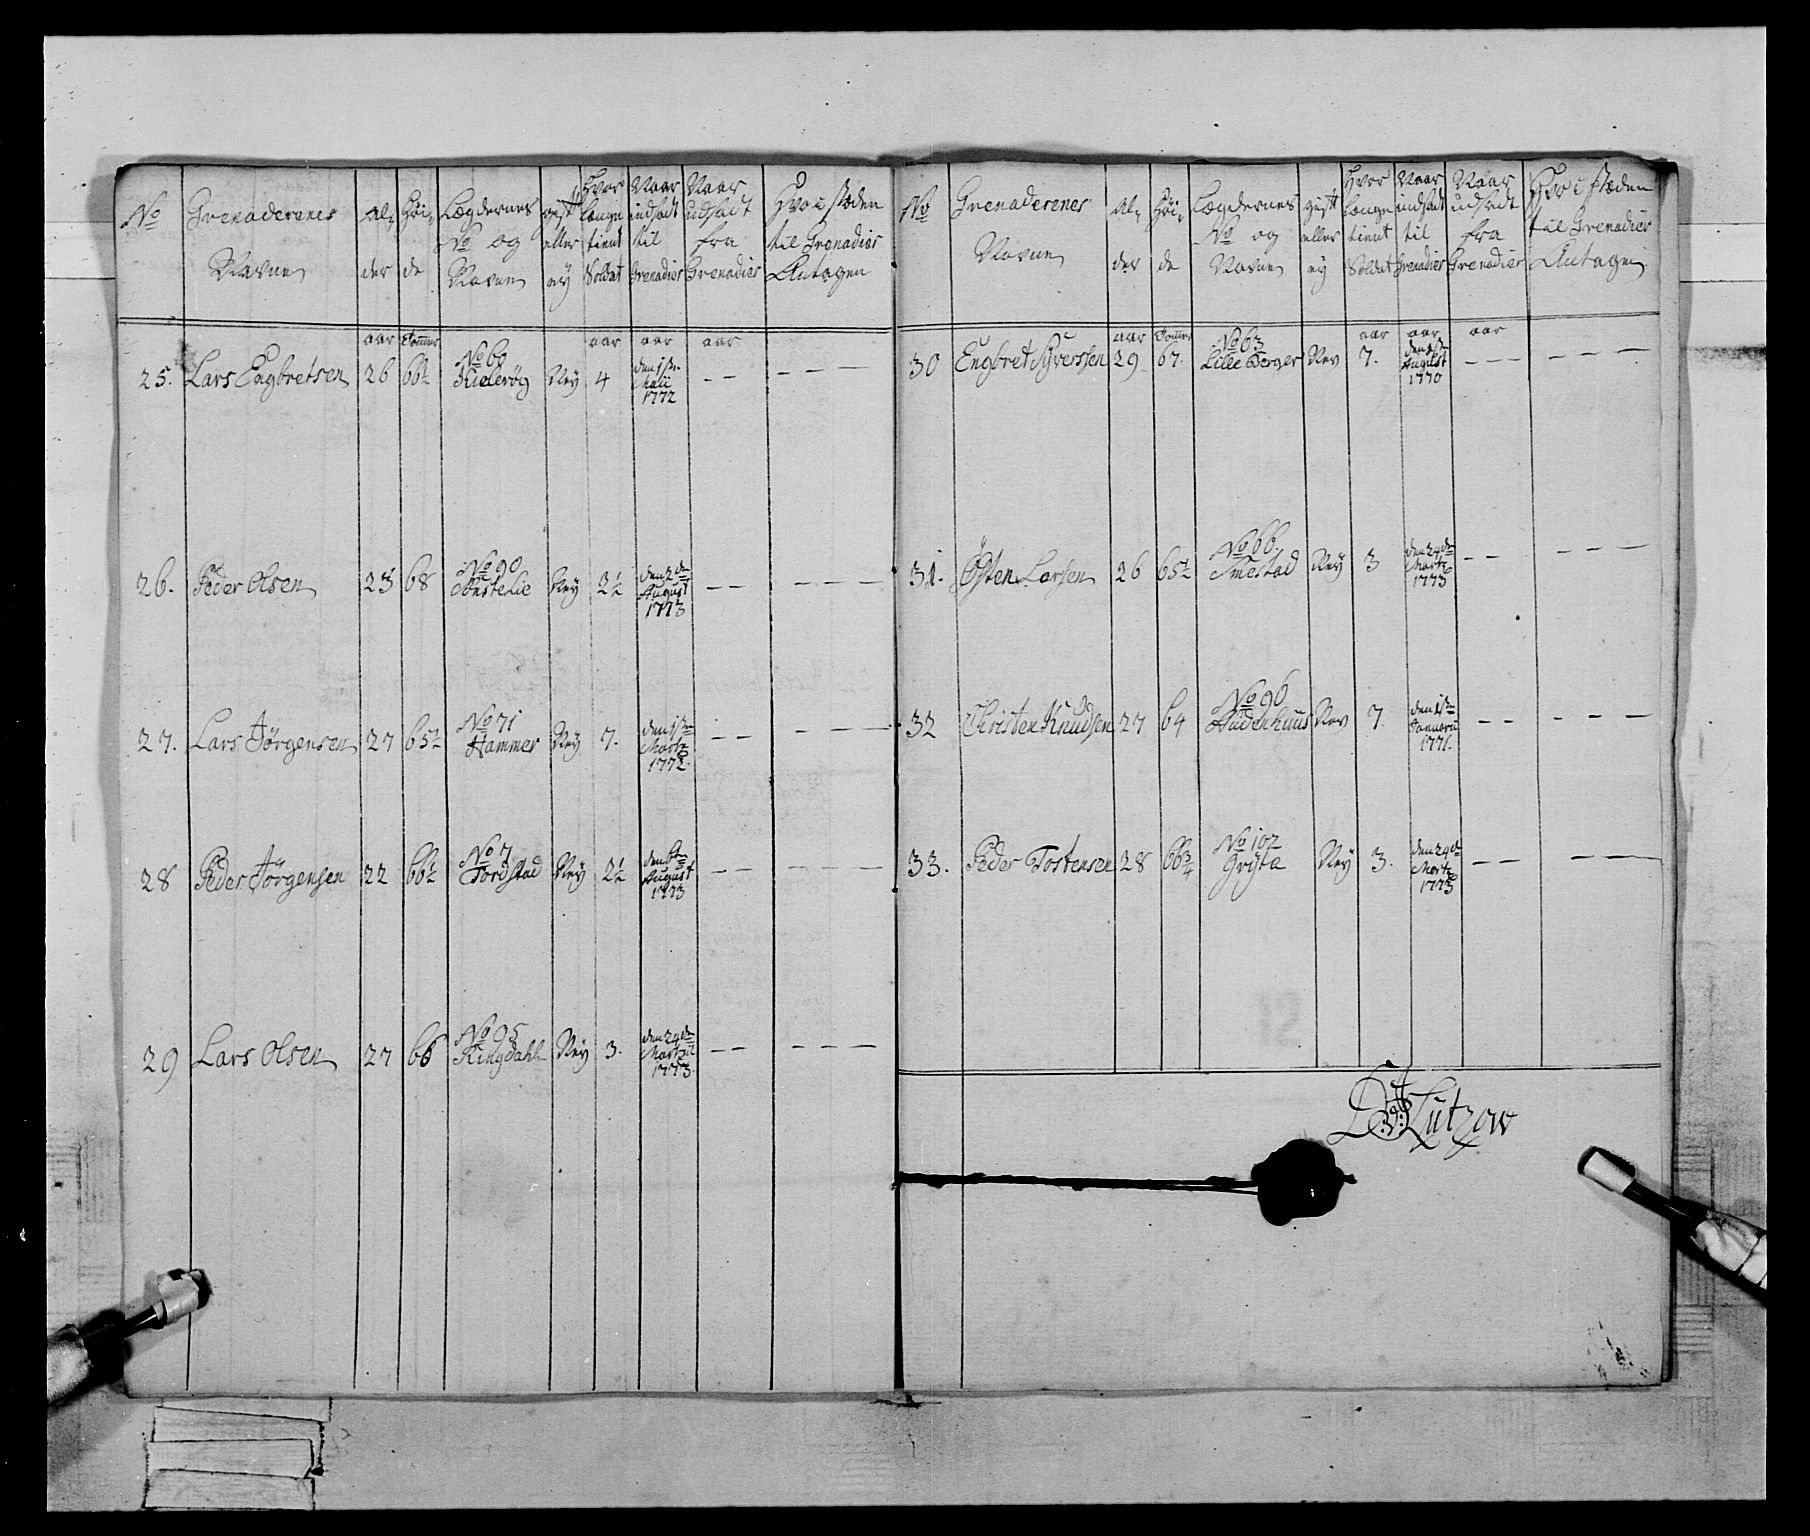 No Grenaderenes Navne Alder Höide Lægdernes No og Navne gift eller ey Hvor længe tient Soldat Naar indsadt til Grenadier Naar udsadt fra Grenadier Hvo i stæden til Grenadier Antagen
aar Tommer aar aar aar
25. Lars Engbretsen 26 66½ No 60 Ney 4 den 1ste Maii 1772 — — — — —
26. Peder Olsen 23 68 No 90 Tonstelie Ney 3½ den 2de August 1773 — — — — —
27. Lars Jörgensen 27 65½ No 71 Hammer Ney 7. den 1ste Martz 1772. — — — — —
28 Peder Jörgensen 22 66½ No 7 Tordstad Ney 2½ den 6te August 1773 — — — — —
29 Lars Olsen 27 66 No 95 Ringdahl Ney 3. den 24de Martz 1773. — — — — —
No Grenaderenes Navne Alder Höide Lægdernes No og Navne gift eller ey Hvor længe tient Soldat Naar indsadt til Grenadier Naar udsadt fra Grenadier Hvo i stæden til Grenadier Antagen
aar Tommer aar aar aar
30 Engbret Syversen 29 67. No 63 Lille Berger Ney 7. den 1ste August 1770 — — — — — —
31. Östen Larsen 26 65½ No 66. Smestad Ney 3 den 24de Martz 1773 — — — — —
32 Christen Knudsen 27 64 No 96 Ney 7. den 1ste Januarii 1771. — — — — —
33. Peder Tostensen 28 66¾ No 102 Gryte Ney 3. den 24de Martz 1773 — — — — —
Lützow